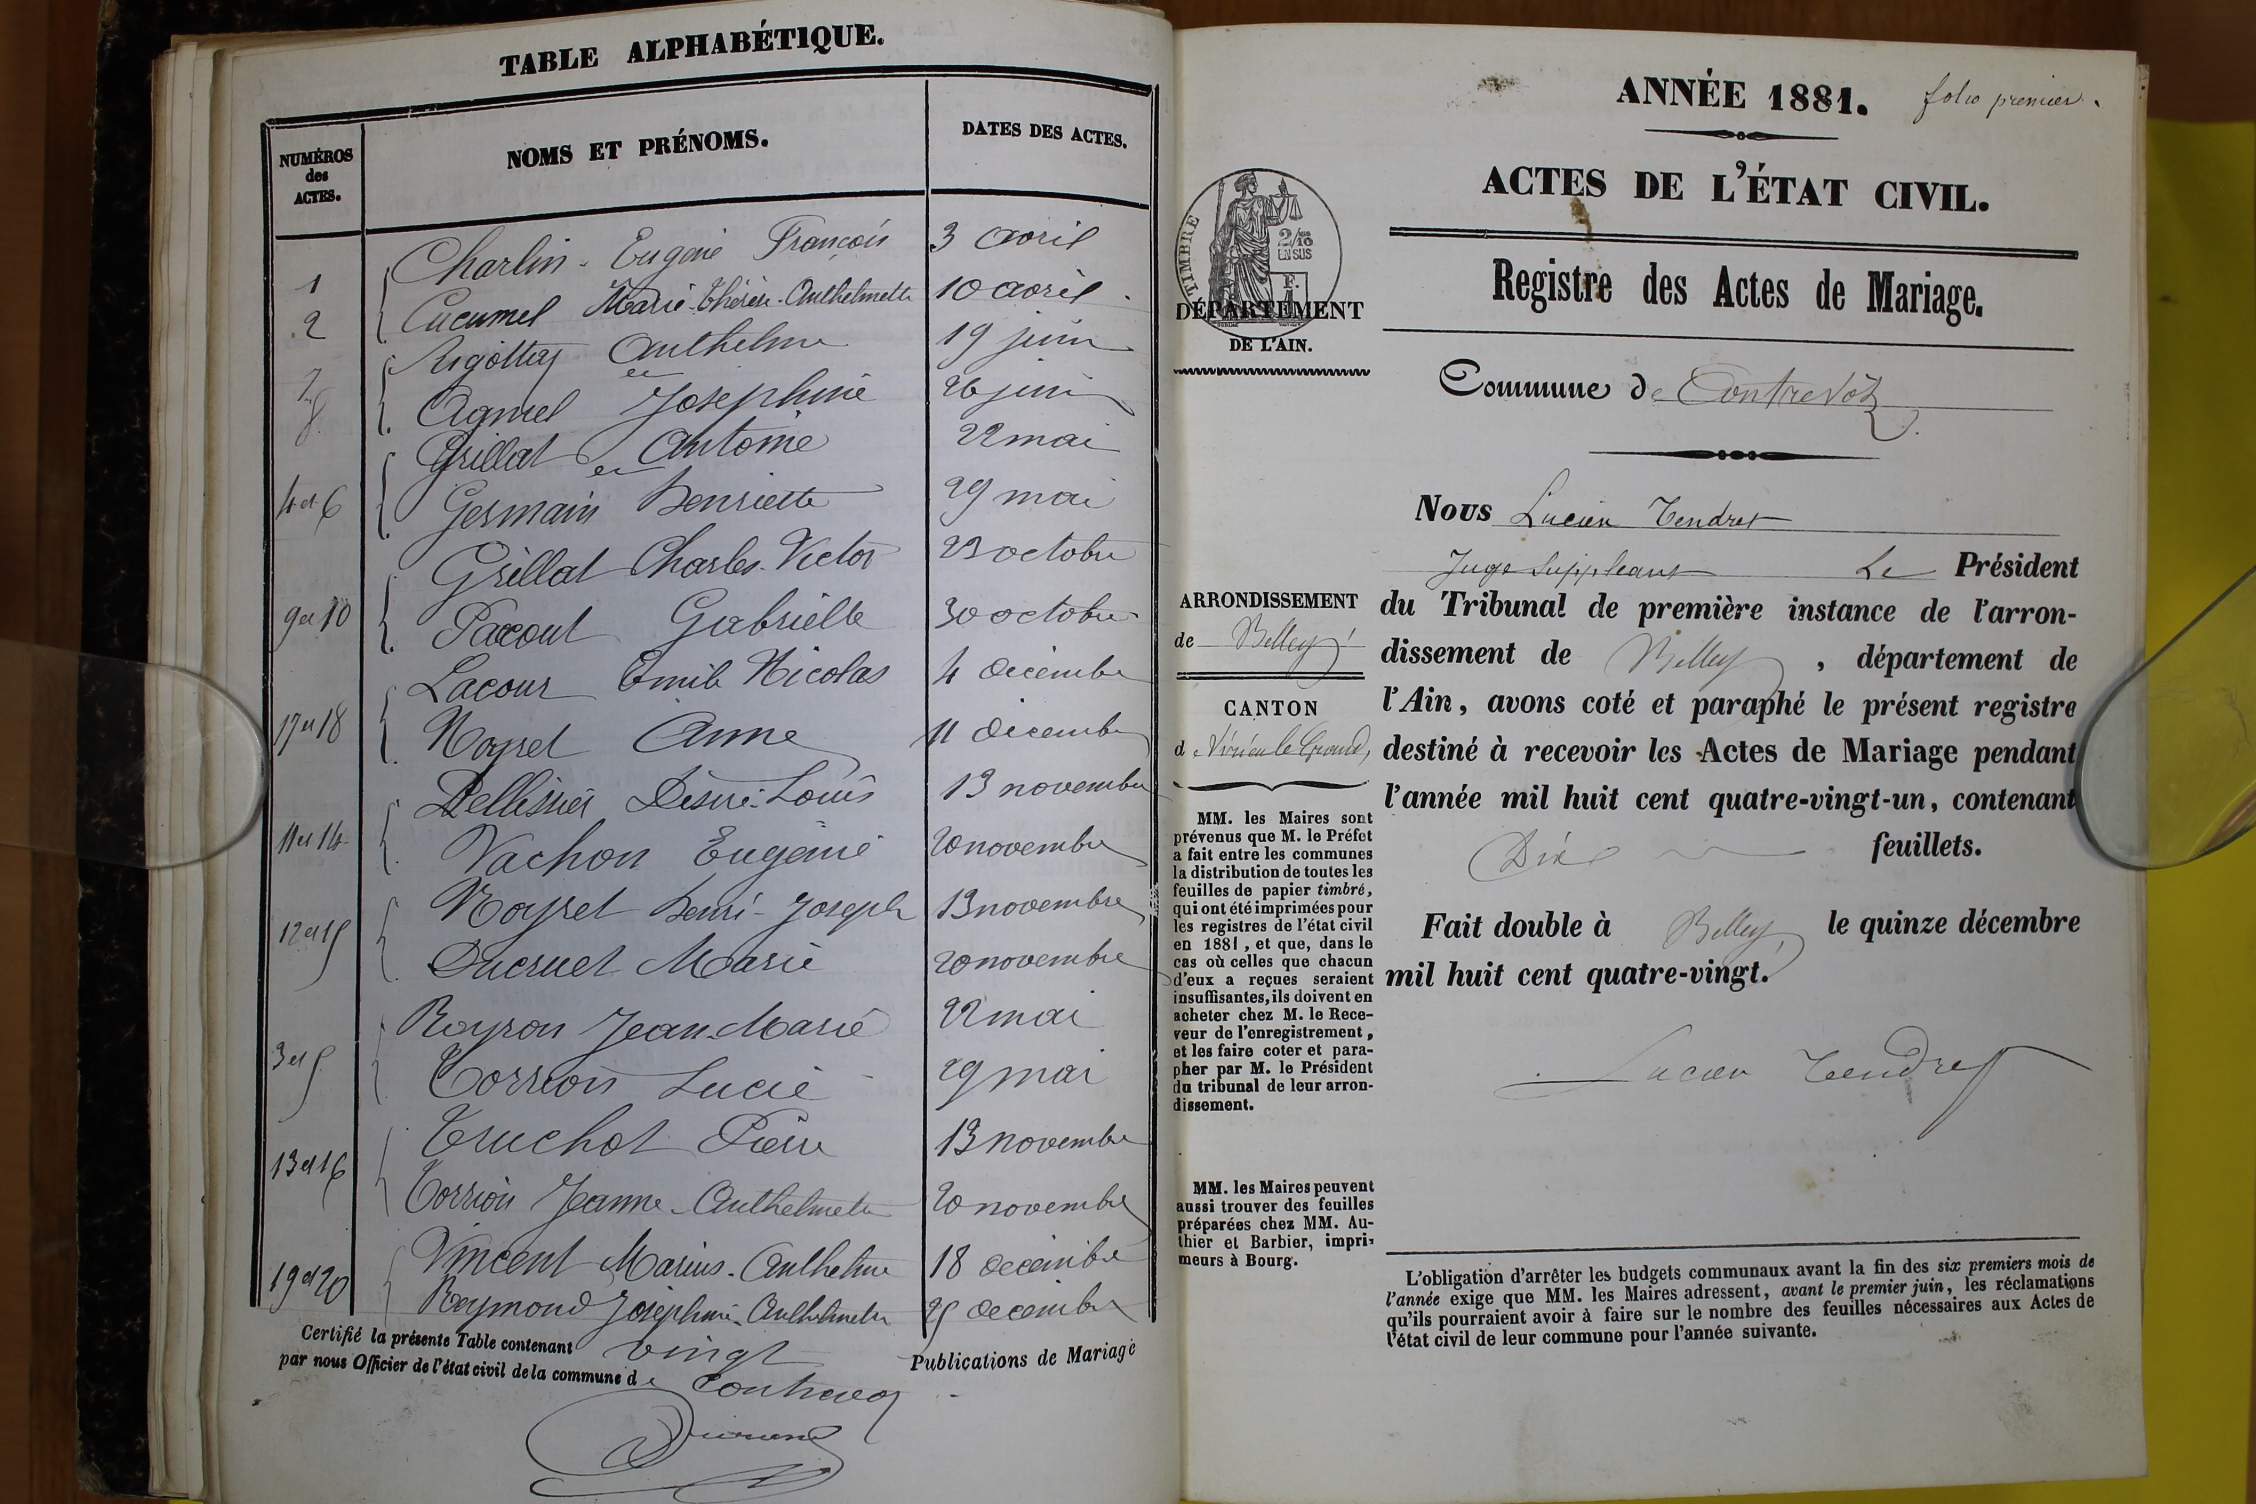 TABLE ALPHABÉTIQUE.
NUMÉROS
des
ACTES.
NOMS ET PRÉNOMS.
DATES DES ACTES.
1 Charlin Eugène François 3 avril
2 Cucumel Marie-Thérèse-Anthelmette 10 avril
7 Rigollet Anthelme 19 juin
et
8 Agniel Joséphine 26 juin
Grillat Antoine 22 mai
et
4 et 6 Germain henriette 29 mai
Grillat Charles-Victor 23 octobre
9 et 10 Pacout Gabrielle 30 octobre
Lacour Emile Nicolas 4 décembre
17 et 18 Noyret Anne 11 décembre
Pellissier Désiré-Louis 13 novembre
11 et 14 Vachon Eugénie 20 novembre
Noyret henri-Joseph 13 novembre
12 et 15 Ducruet Marie 20 novembre
Royron Jean-Marie 22 mai
3 et 5 Torrion Lucie 29 mai
Truchot Pierre 13 novembre
13 et 16 Torrion Jeanne-Anthelmette 20 novembre
Vincent Marius-Anthelme 18 décembre
19 et 20 Reymond Joséphine-Anthelmette 25 décembre
Certifié la présente Table contenant vingt Publications de Mariage
par nous Officier de l'état civil de la commune de Contrevoz
ANNÉE 1881.
folio premier.
ACTES DE L'ÉTAT CIVIL.
TIMBRE
2/10
EN SUS
F.
1
DÉPARTEMENT
DE L'AIN.
Registre des Actes de Mariage.
Commune de Contrevoz
Nous Lucien Tendret
Juge Suppléant Le Président
du Tribunal de première instance de l'arron-
dissement de Belley, département de
l'Ain, avons coté et paraphé le présent registre
destiné à recevoir les Actes de Mariage pendant
l'année mil huit cent quatre-vingt-un, contenant
Dix feuillets.
Fait double à Belley, le quinze décembre
mil huit cent quatre-vingt.
Lucien Tendret
ARRONDISSEMENT
de Belley
CANTON
de Virieu le Grand,
MM. les Maires sont
prévenus que M. le Préfet
a fait entre les communes
la distribution de toutes les
feuilles de papier timbré,
qui ont été imprimées pour
les registres de l'état civil
en 1881, et que, dans le
cas où celles que chacun
d'eux a reçues seraient
insuffisantes, ils doivent en
acheter chez M. le Rece-
veur de l'enregistrement,
et les faire coter et para-
pher par M. le Président
du tribunal de leur arron-
dissement.
MM. les Maires peuvent
aussi trouver des feuilles
préparées chez MM. Au-
thier et Barbier, impri-
meurs à Bourg.
L'obligation d'arrêter les budgets communaux avant la fin des six premiers mois de
l'année exige que MM. les Maires adressent, avant le premier juin, les réclamations
qu'ils pourraient avoir à faire sur le nombre des feuilles nécessaires aux Actes de
l'état civil de leur commune pour l'année suivante.